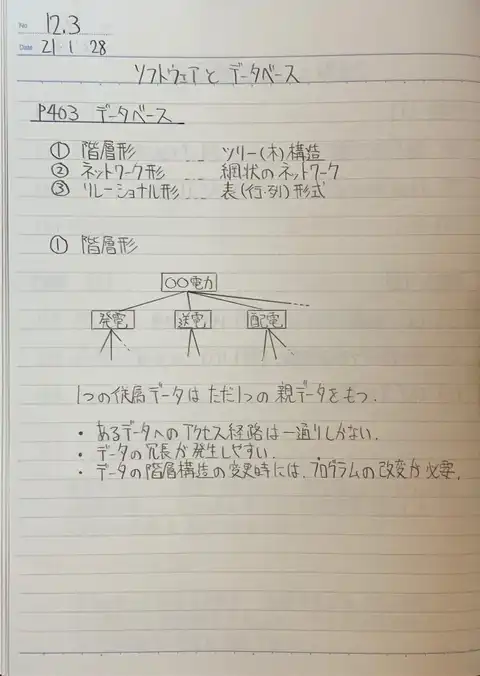 No. 12.3
Date 21・1・28
ソフトウェアと データベース
P463 データベース
① 階層形 … ツリー(木)構造
② ネットワーク形 … 網状のネットワーク
③ リレーショナル形 … 表(行・列)形式
① 階層形
〇〇電力
発電 送電 配電
1つの従属データは ただ1つの 親データをもつ.
・ あるデータへの アクセス経路は一通りしかない.
・ データの冗長が発生しやすい.
・ データの階層構造の変更時には、プログラムの改変が必要.